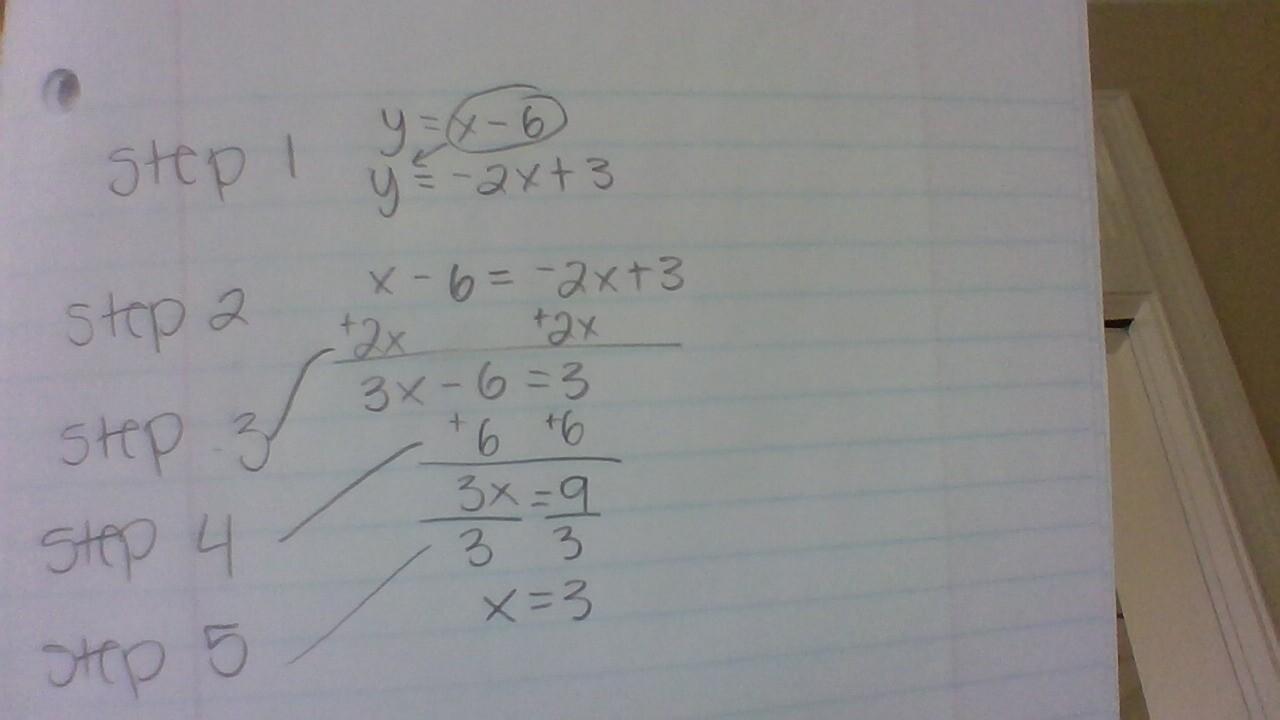 y = x - 6
step 1
y = -2x + 3
x - 6 = -2x + 3
step 2
+2x +2x
3x - 6 = 3
step 3
+6 +6
3x = 9
step 4
3 3
x = 3
step 5